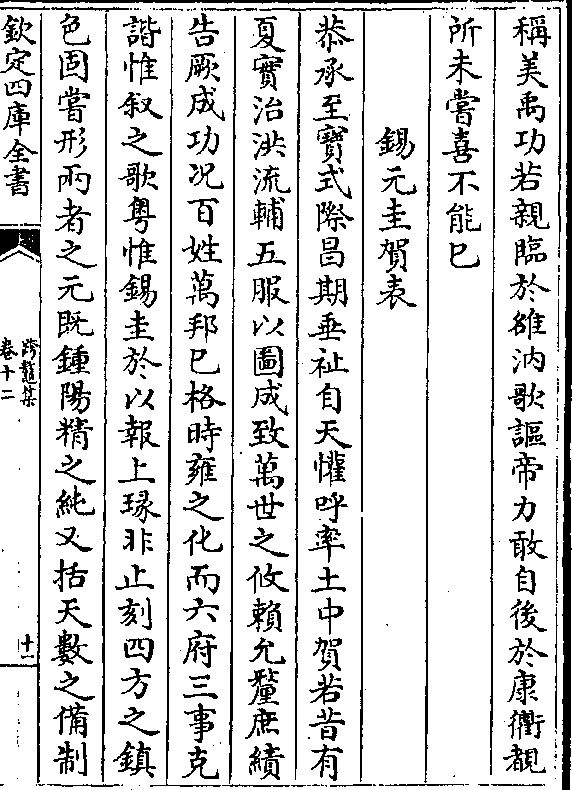 稱美禹功若親臨於雒汭歌謳帝力敢自後於康衢覩
所未嘗喜不能已
錫元圭賀表
恭承至寶式際昌期垂祉自天懽呼率土中賀若昔有
夏實治洪流輔五服以圖成致萬世之攸賴允釐庶績
告厥成功况百姓萬邦巳格時雍之化而六府三事克
諧惟叙之歌粤惟錫圭於以報上瑑非止刻四方之鎮
色固嘗形兩者之元既鍾陽精之純又括天數之備制
欽定四庫全書
跨鼇集
卷十二
十一